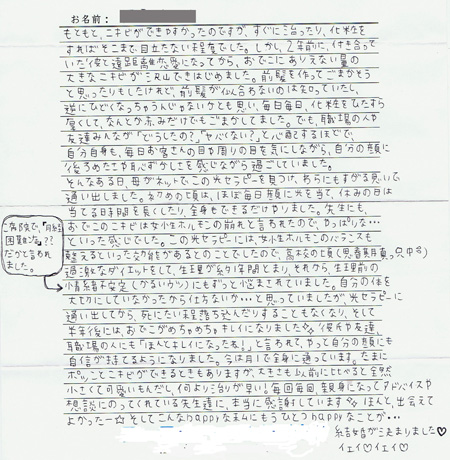 お名前：
もともと、ニキビができやすかったのですが、すぐに治ったり、化粧を
すればそこまで目立たない程度でした。しかし、2年前に、付き合って
いた彼と遠距離恋愛になってから、おでこにありえない量の
大きなニキビが沢山できはじめました。前髪を作ってごまかそう
と思ったりもしたけれど、前髪が似合わないのは知っていたし、
逆にひどくなっちゃうんじゃないかとも思い、毎日毎日、化粧をひたすら
厚くして、なんとかふみだけでもごまかしてました。でも、職場の人や
友達みんなが「どうしたの？」「ヤバくない？」と心配するほどで、
自分自身も、毎日お客さんの目や周りの目を気にしながら、自分の顔に
後ろめたさや恥ずかしさを感じながら過ごしていました。
そんなある日、母がネットでこの光セラピーを見つけ、あちらにもすがる思いで
通い出しました。初めの頃は、ほぼ毎日顔に光を当て、休みの日は
当てる時間を長くしたり、全身もできるだけやりました。先生にも、
おでこのニキビは女性ホルモンの崩れと言われたので、やっぱりな…
といった感じでした。この光セラピーには、女性ホルモンのバランスも
整えるといった効能があるとのことでしたので、高校の頃（思春期真っ只中)
過激なダイエットをして、生理が約1年間とまり、それから、生理前の
情緒不安定（かるいうつ）にもずっと悩まされていました。自分の体を
大切にしていなかったから仕方ないか…と思っていましたが、光セラピーに
通い出してから、死にたい程落ち込んだりすることもなくなり、そして
半年後には、おでこがめちゃめちゃキレイになりました☆彼氏や友達、
職場の人にも「ほんとキレイになったね！」と言われて、やっと自分の顔にも
自信が持てるようになりました。今は月1で全身に通っています。たまに
ポツッとニキビができるときもありますが、大きさも以前に比べると全然
小さくて可愛いもんだし、何より治りが早い！毎回毎回、親身になってアドバイスや
相談にのってくれている先生達に、本当に感謝しています☆ほんと、出会えて
よかったー☆そしてこんなhappyな私にもうひとつhappyなことが…
結婚が決まりました♡
イェイ♡イェイ♡
ご病院で、「月経
困難症」??
だかと言われ
ました。